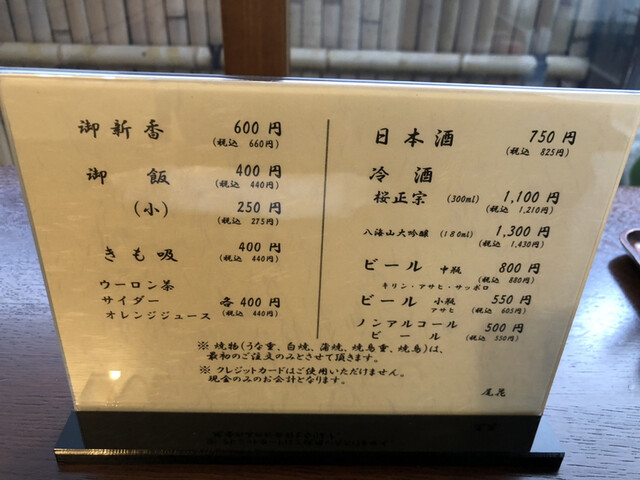 御新香 600円
(税込 660円)
御飯 400円
(税込 440円)
(小) 250円
(税込 275円)
きも吸 400円
(税込 440円)
ウーロン茶
サイダー 各400円
オレンジジュース (税込 440円)
日本酒 750円
(税込 825円)
冷酒
桜正宗 (300ml) 1,100円
(税込 1,210円)
八海山大吟醸 (180ml) 1,300円
(税込 1,430円)
ビール 中瓶 800円
(税込 880円)
キリン・アサヒ・サッポロ
ビール 小瓶 550円
アサヒ (税込 605円)
ノンアルコール
ビール 500円
(税込 550円)
※ 焼物(うな重、白焼、蒲焼、焼鳥重、焼鳥)は、
最初のご注文のみとさせて頂きます。
※ クレジットカードはご使用いただけません。
現金のみのお会計となります。
尾花